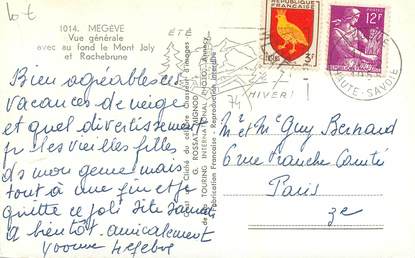 1014. MEGÈVE
Vue générale
avec au fond le Mont Joly
et Rochebrune
Bien agréables ces
vacances de neige
et quel divertissement
pr les vieilles filles
ds mon genre mais
tout à une fin et je
quitte ce joli site samedi
à bientôt. amicalement
Yvonne Lefebvre
Cliché du célèbre Chasseur d'images
G. ROSSAT-MIGNOD
TOURING INTERNATIONAL PHOTO
Fabrication Française - Reproduction interdite
ÉTÉ
HIVER!
RÉPUBLIQUE FRANÇAISE
3F
12F
HAUTE-SAVOIE
Mr et Me Guy Bernard
6 rue Franche Comté
Paris
3e